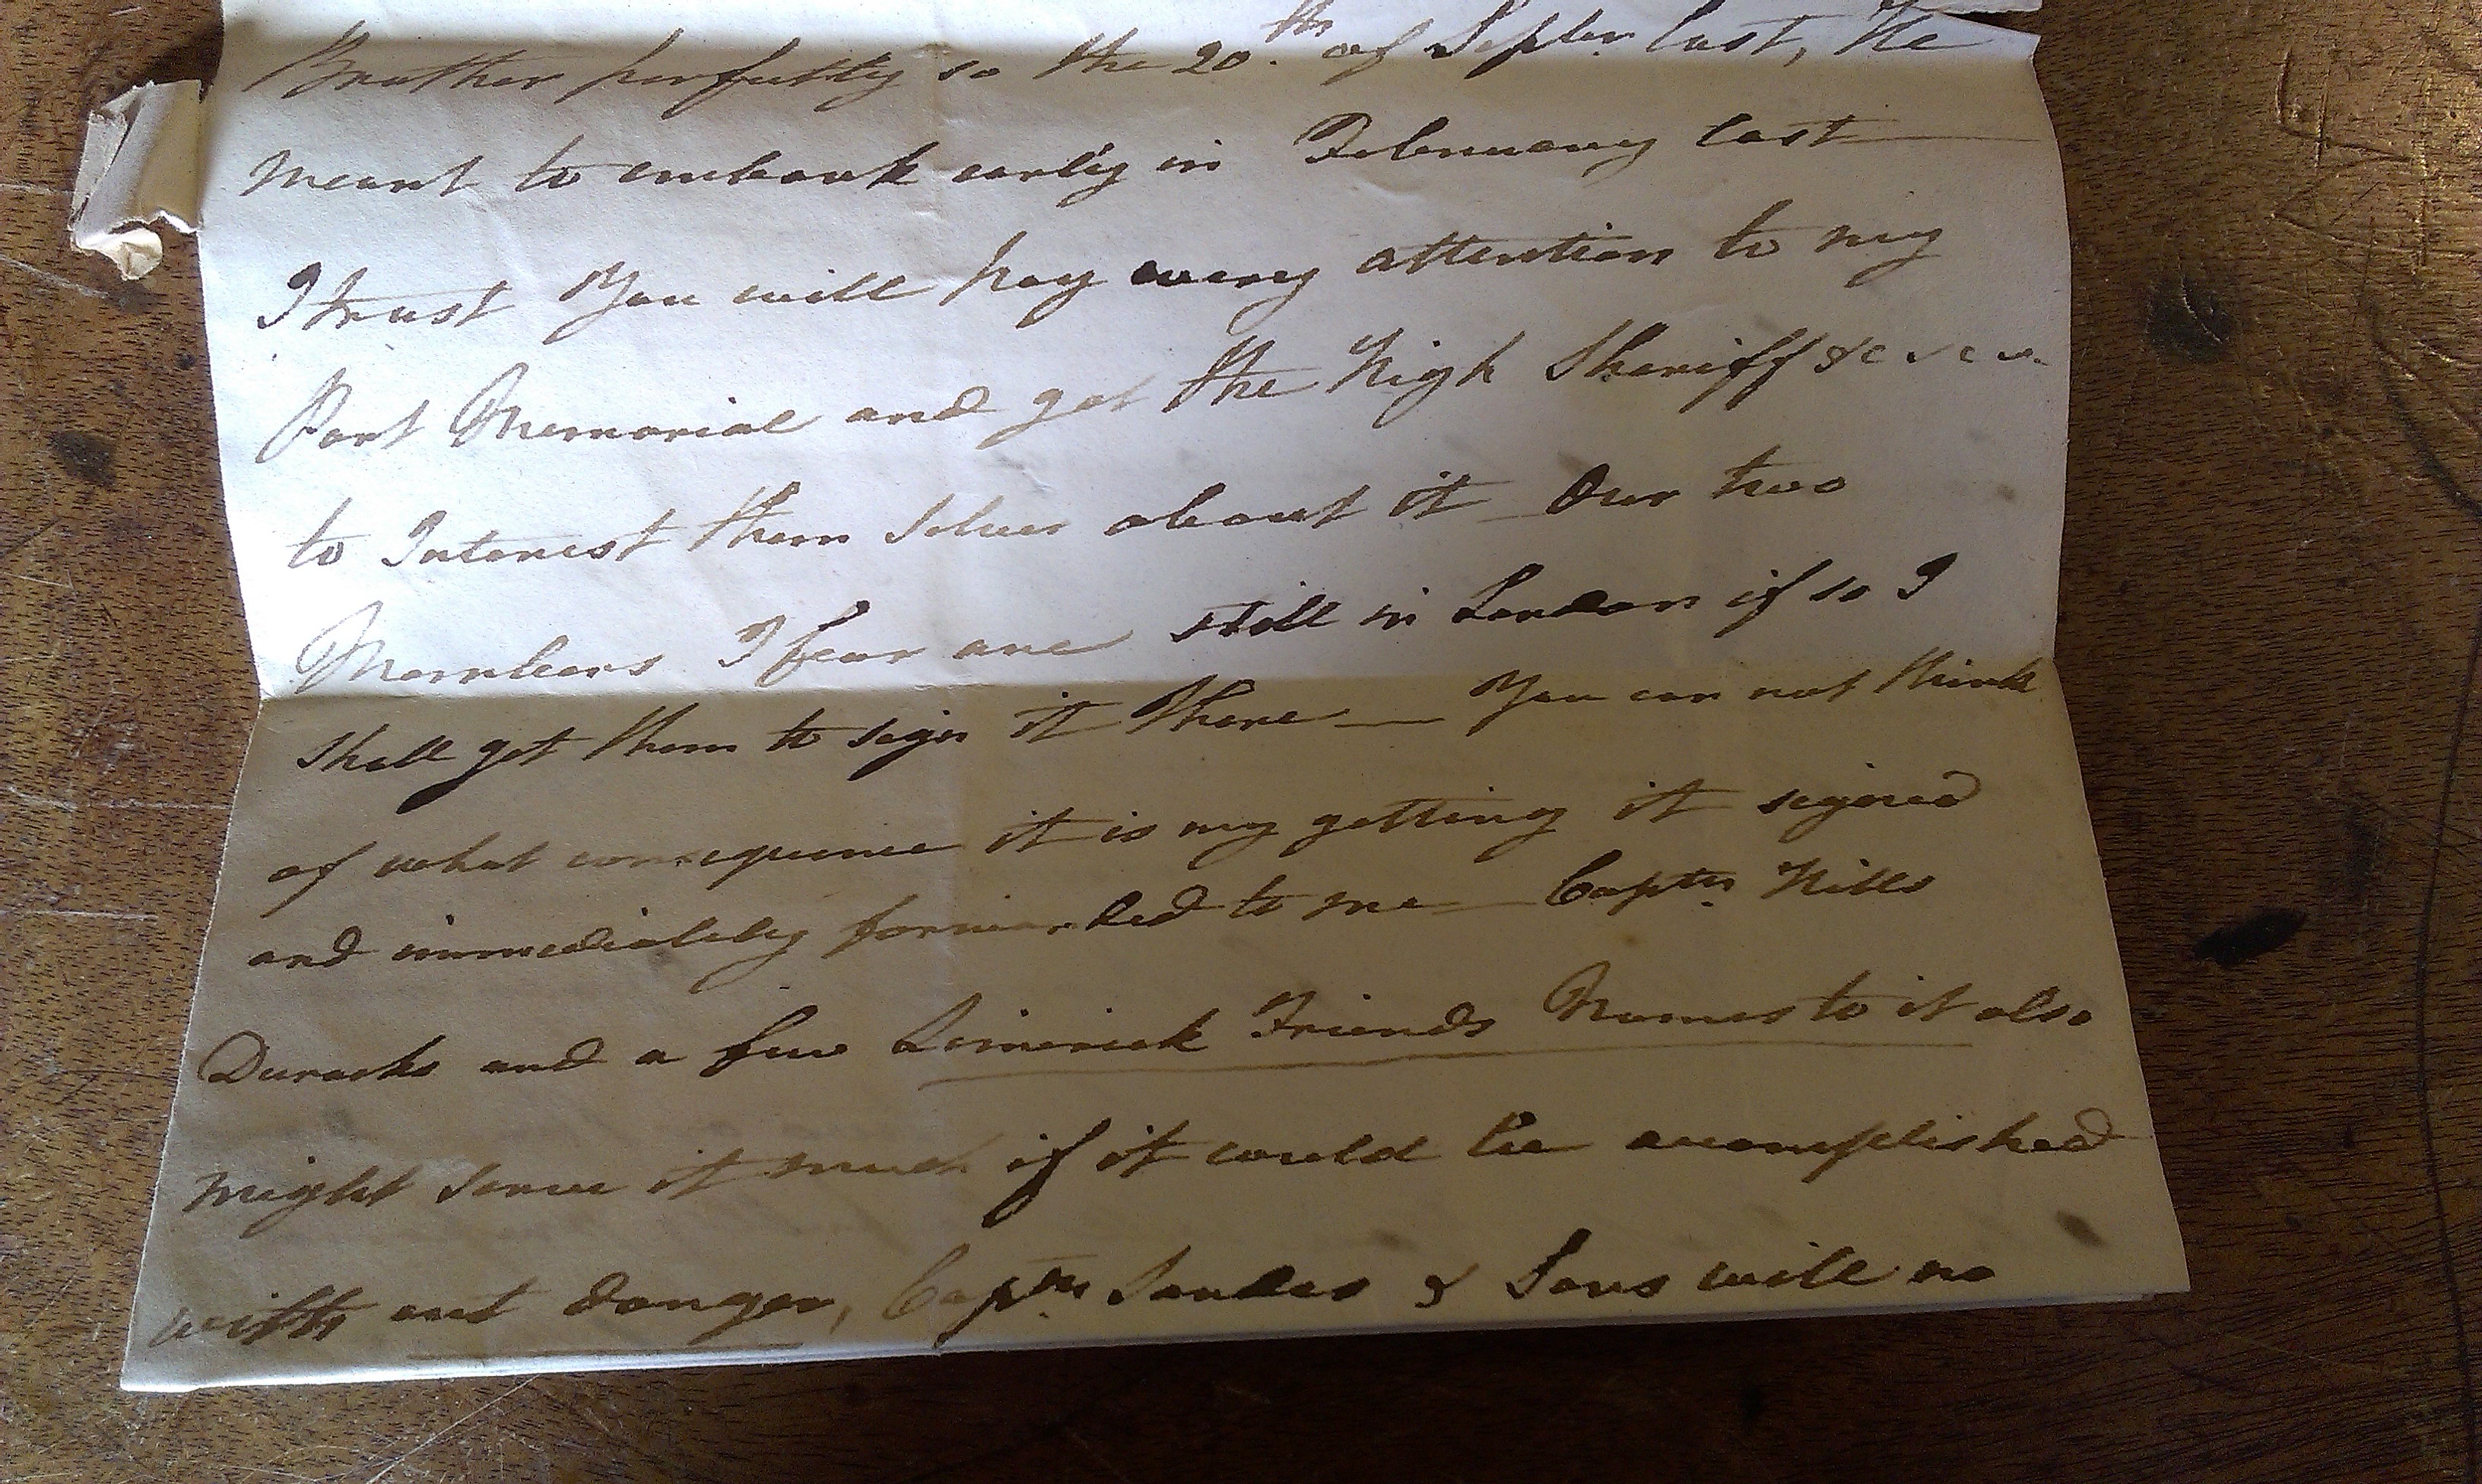 Brother perfectly so the 20th. of Septr. last, He
meant to embark early in February last
I trust You will pay every attention to my
Port Memorial and get the High Sheriff &c &c &c
to Interest them selves about it Our two
Members I fear are still in London if so I
shall get them to sign it there — You can not think
of what consequence it is my getting it signed
and immediately forwarded to me — Captn. Hills
and a few Limerick Friends Names to it also
might serve it much if it could be accomplished
with out danger, Captn. & Sons will no